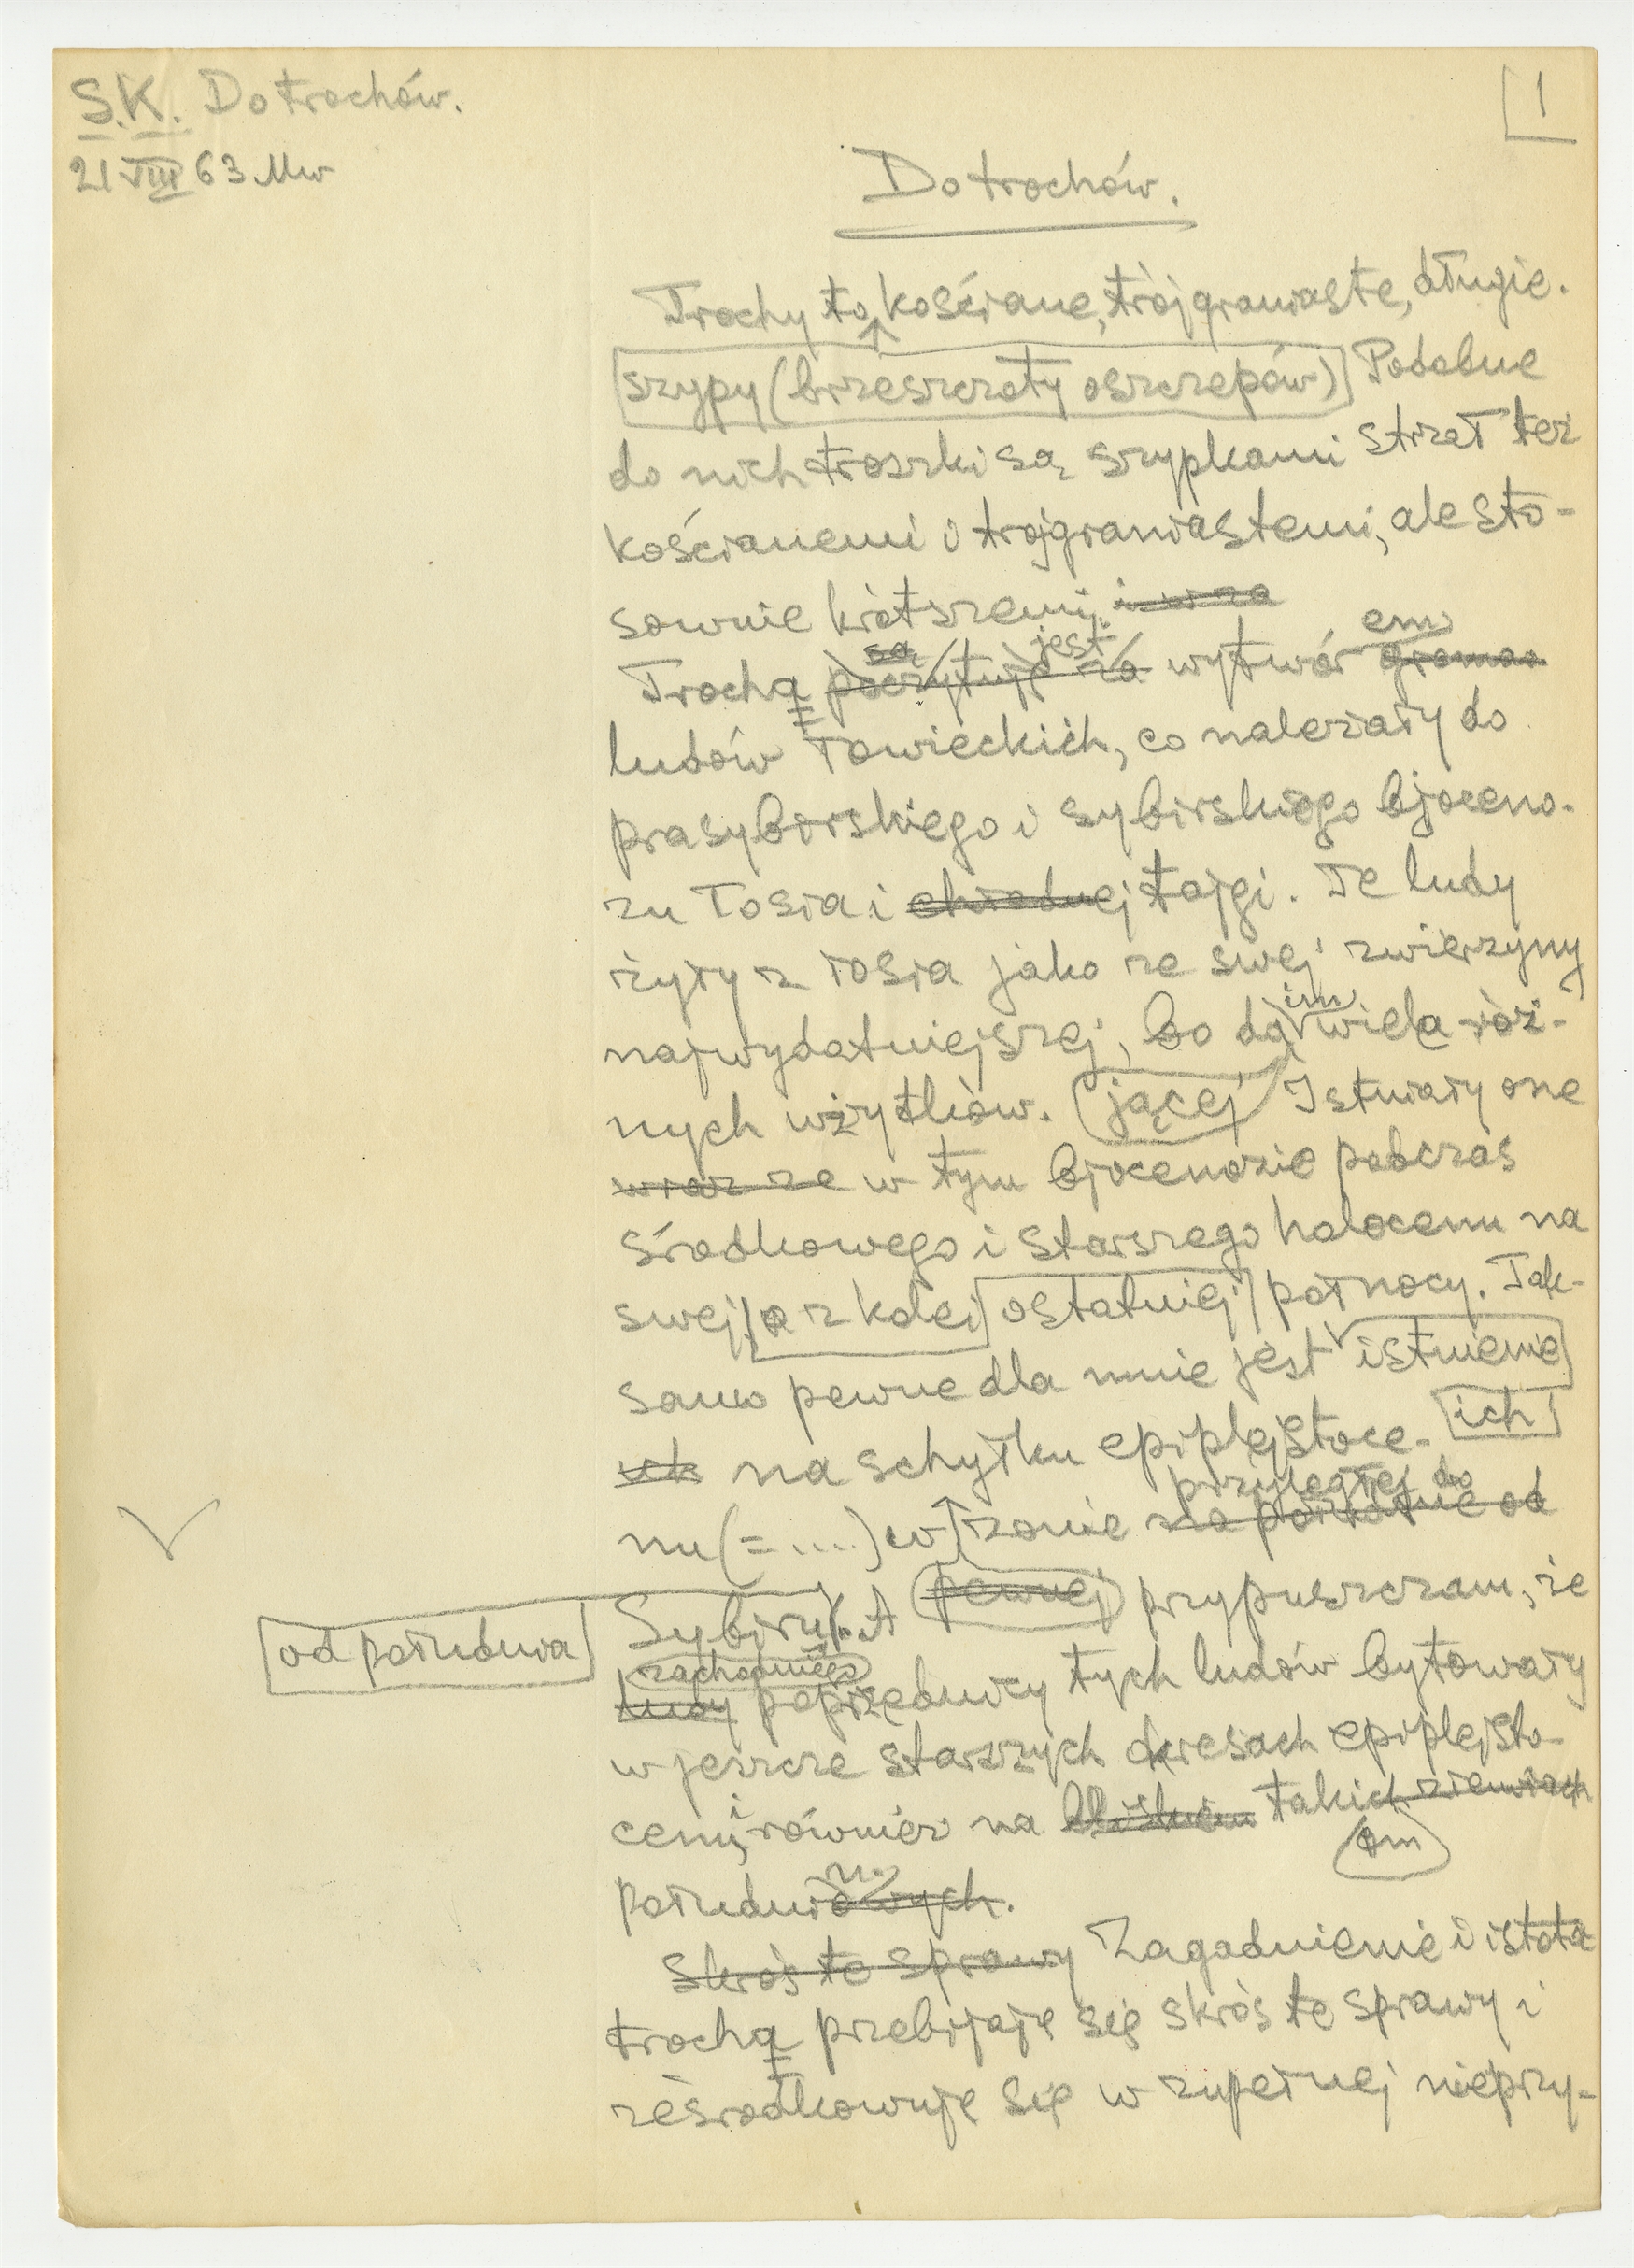 S.K. Do trochów.
21 VIII 63 Mw
1
Do trochów.
Trochy to kościane, trójgraniaste, długie.
szypy (brzeszczoty oszczepów) Podobne
do nich troszki są szypkami strzał też
kościanemi i trójgraniastemi, ale sto-
sownie krótszemi. i wraz
są jest em
Trochą poczytuję za wytwór gromad
ludów łowieckich, co należały do
prasybirskiego i sybirskiego bjoceno-
zu łosia i chłodnej tajgi. Te ludy
żyły z łosia jako ze swej zwierzyny
im
najwydatniejszej, bo da wiela róż-
nych użytków. jącej Istniały one
wraz ze w tym bjocenozie podczas
środkowego i starszego holocenu na
swej, a z kolei ostatniej północy. Tak-
samo pewne dla mnie jest istnienie
na schyłku epiplejstoce- ich
przyległej do
nu (= ....) w zonie na południe od
Sybiru. A pewnej przypuszczam, że
od południa
zachodniego
ludy poprzednicy tych ludów bytowały
w jeszcze starszych okresach epiplejsto-
cenu, i również na takich ziemiach
om
nu.
południowych.
Skróś te sprawy Zagadnienie i istota
trochą przebijaję się skróś te sprawy i
ześrodkowuję się w zupełnej nieprzy-